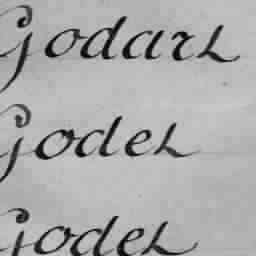 Godart
Godet
Godet